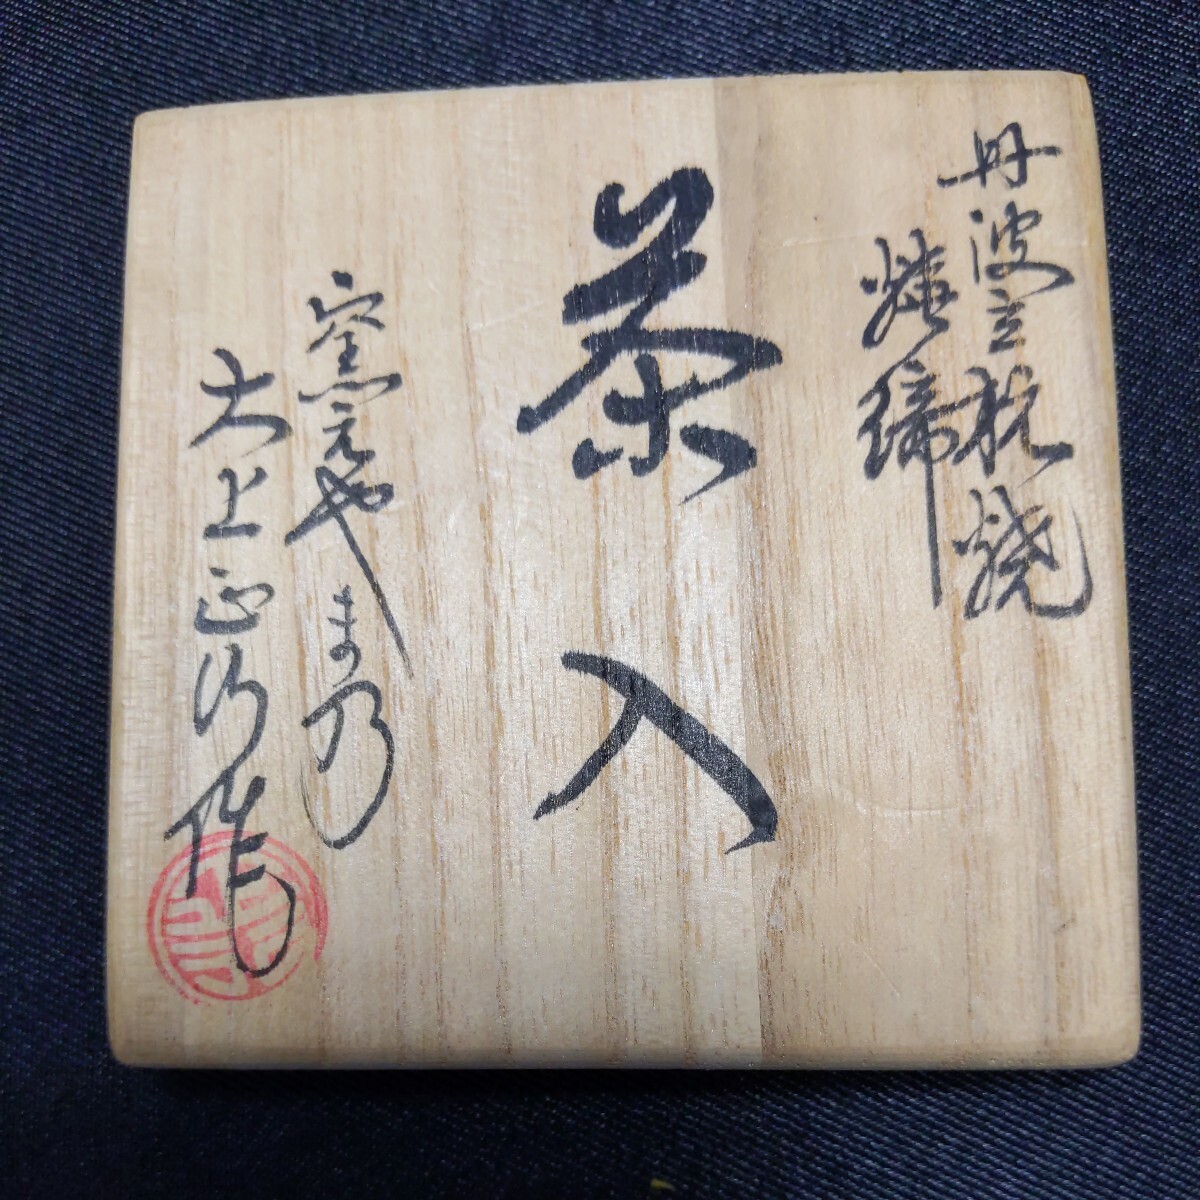 丹波立杭焼
焼締
茶入
窯元やまの
大上正巧作